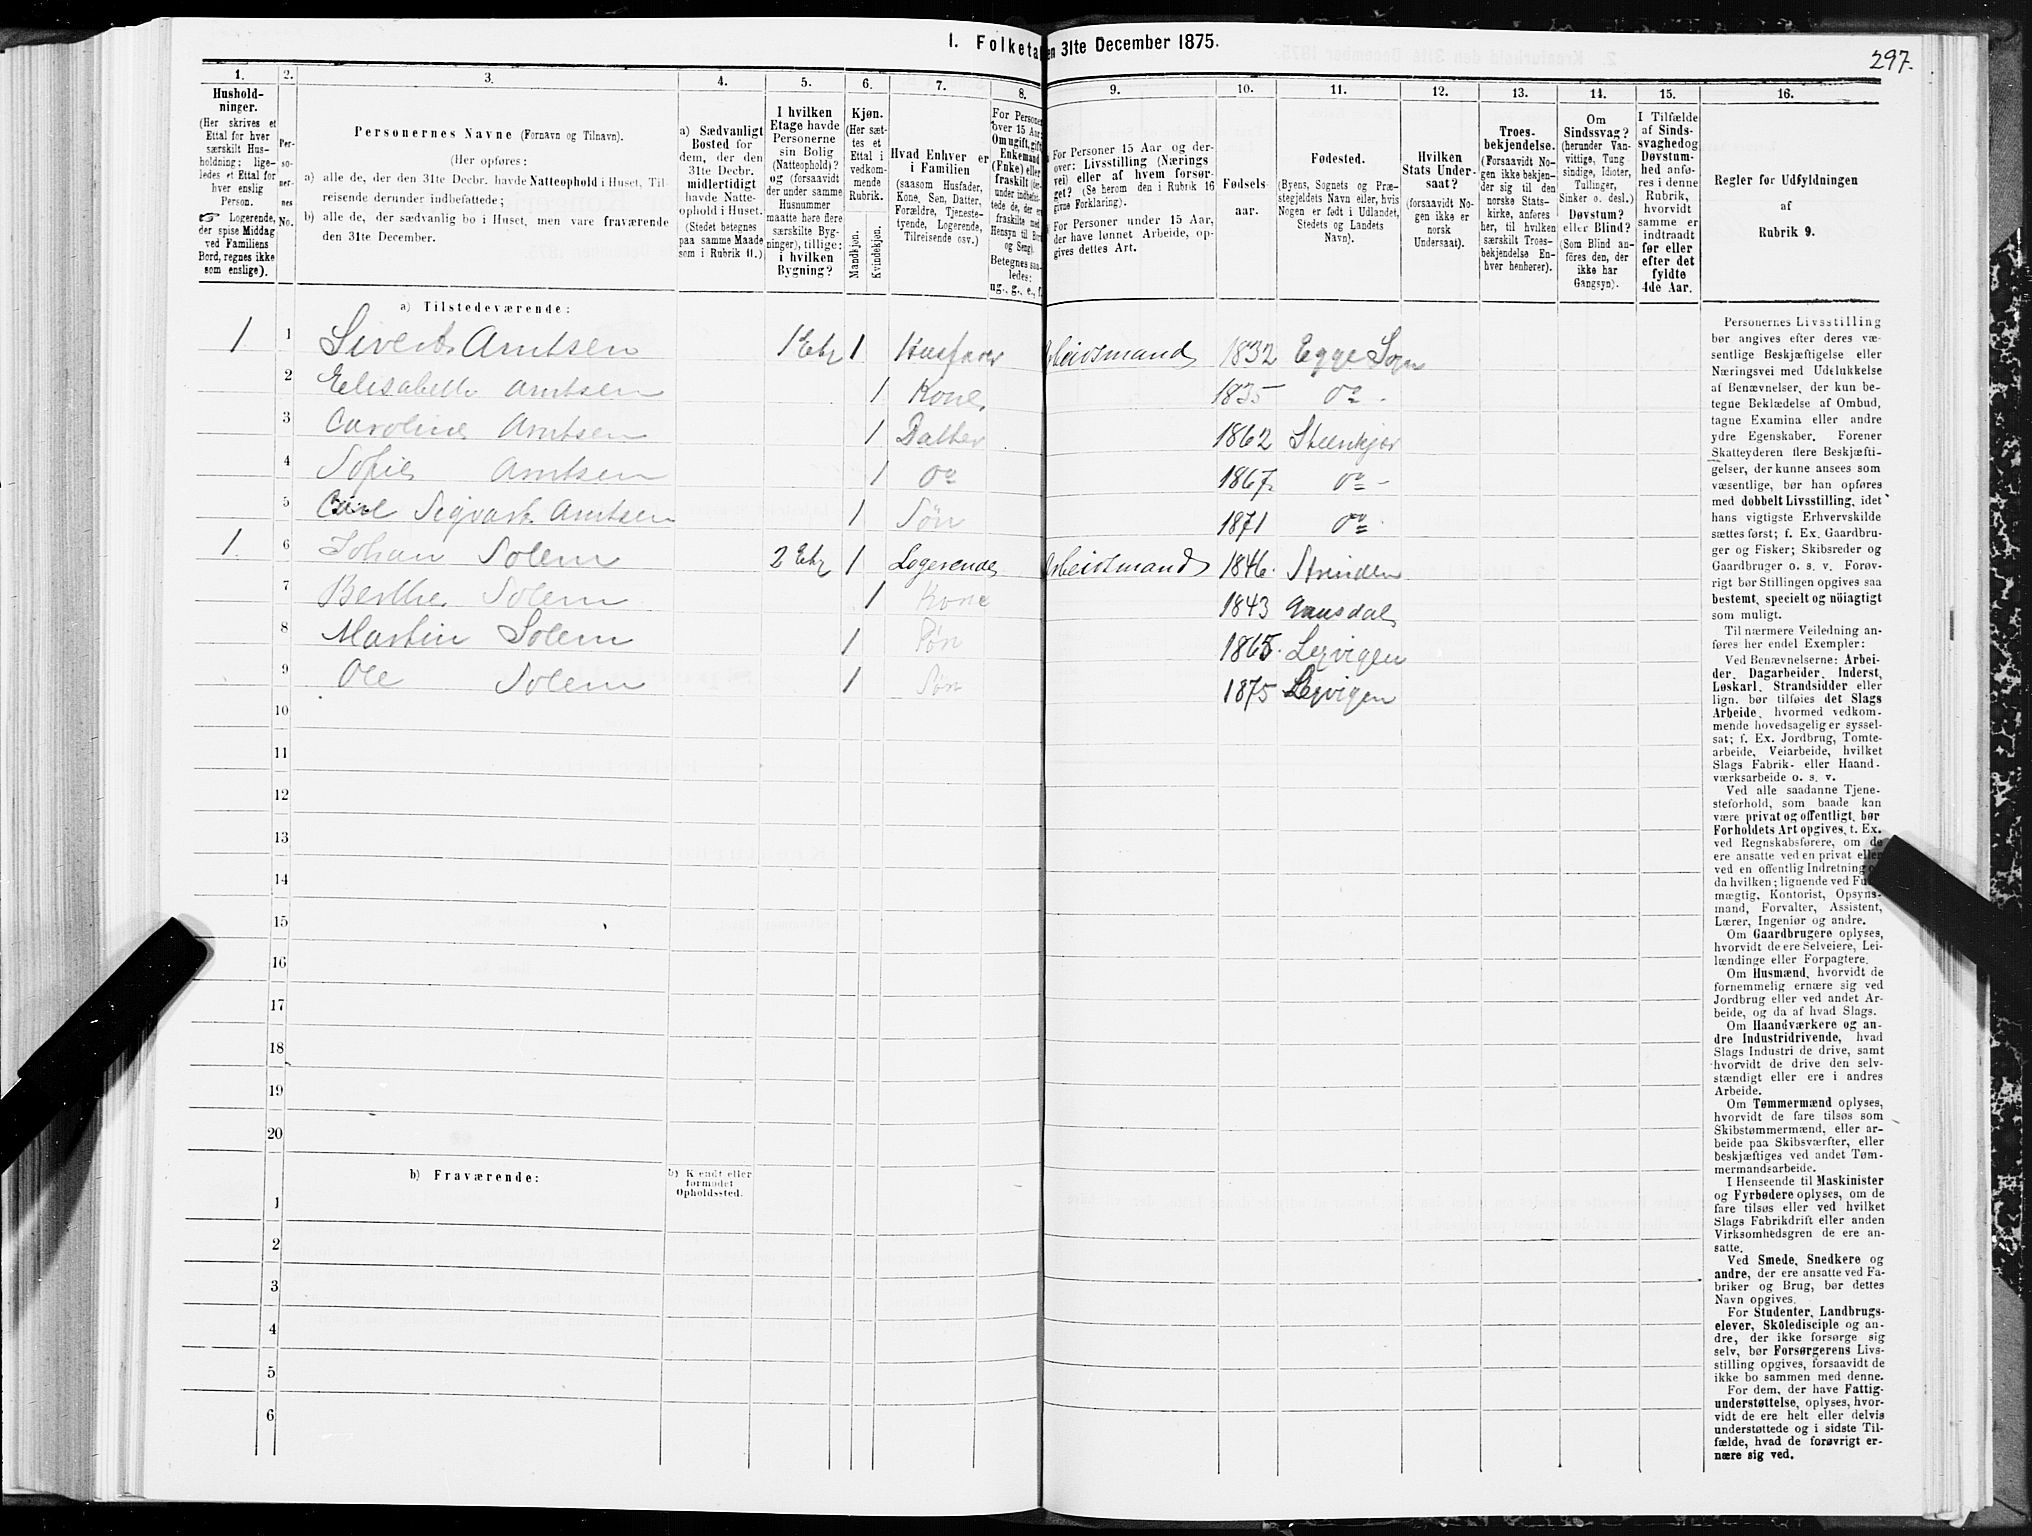 I. Folketa en 31te December 1875.
297.
1.
Hushold-
ninger.
(Her skrives et
Ettal for hver
særskilt Hus-
holdning; lige-
ledes et Ettal for
hver enslig
Person.
☞ Logerende,
der spise Middag
ved Familiens
Bord, regnes ikke
som enslige).
2.
Per-
so-
ner-
nes
No.
3.
Personernes Navne (Fornavn og Tilnavn).
(Her opføres:
a) alle de, der den 31te Decbr. havde Natteophold i Huset, Til-
reisende derunder indbefattede;
b) alle de, der sædvanlig bo i Huset, men vare fraværende
den 31te December.
4.
a) Sædvanligt
Bosted for
dem, der den
31te Decbr.
midlertidigt
havde Natte-
ophold i Huset.
(Stedet betegnes
paa samme Maade
som i Rubrik 11.)
5.
I hvilken
Etage havde
Personerne
sin Bolig
(Natteophold)?
og (forsaavidt
der under samme
Husnummer
maatte høre flere
særskilte Byg-
ninger), tillige:
i hvilken
Bygning?
6.
Kjøn.
(Her sæt-
tes et
Ettal i
vedkom-
mende
Rubrik.
Mandkjøn.
Kvindekjøn.
7.
Hvad Enhver er
i Familien
(saasom Husfader,
Kone, Søn, Datter,
Forældre, Tjeneste-
tyende, Logerende,
Tilreisende osv.)
8.
For Persone
over 15 Aar:
Om ugift, gift,
Enkemand
(Enke) eller
fraskilt
og Seng).
Betegnes saa-
ledes:
ug., g., e., f.
9.
For Personer 15 Aar og der-
over: Livsstilling (Nærings
vei) eller af hvem forsør-
get? (Se herom den i Rubrik 16
givne Forklaring).
For Personer under 15 Aar,
der have lønnet Arbeide, op-
gives dettes Art.
10.
Fødsels-
aar.
11.
Fødested.
(Byens, Sognets og Præ-
stegjeldets Navn eller, hvis
Nogen er født i Udlandet,
Stedets og Landets
Navn).
12.
Hvilken
Stats Under-
saat?
(forsaavidt No-
gen ikke er
norsk
Undersaat).
13.
Troes-
bekjendelse.
(Forsaavidt No-
gen ikke bekjen-
der sig til den
norske Stats-
kirke, anføres
her, til hvilken
særskilt Troes-
bekjendelse En-
hver henhører).
14.
Om
Sindssvag?
(herunder Van-
vittige, Tung-
sindige, Idioter,
Tullinger,
Sinker o. desl.)
Døvstum?
eller Blind?
(Som Blind an-
føres den, der
ikke har
Gangsyn).
15.
I Tilfælde
af Sinds-
svaghed og
Døvstum-
hed anfø-
res i denne
Rubrik,
hvorvidt
samme er
indtraadt
før eller
efter det
fyldte
4de Aar.
16.
Regler for Udfyldningen
af
Rubrik 9.
a) Tilstedeværende:
1 1 Sivert Arntsen 1 Etg 1 Husfader Arbeidsmand 1832 Egge Sogn
2 Elisabeth Arntsen 1 Kone 1835 do
3 Caroline Arntsen 1 Datter 1862 Steenkjær
4 Sofie Arntsen 1 do 1867 do
5 Carl Sigvart Arntsen 1 Søn 1871 do
1. 6 Johan Solem 2 Etg 1 Logerende Arbeidsmand 1846. Strinden
7 Berthe Solem 1 Kone 1843
8 Martin Solem 1 Søn 1865. Lexvigen
9 Ole Solem 1 Søn 1875 Lexvigen
10
11
12
13
14
15
16
17
18
19
20
b) Fraværende:
b) Kjendt eller
formodet
Opholdssted.
1
2
3
4
5
6
Personernes Livsstilling
bør angives efter deres væ-
sentlige Beskjæftigelse eller
Næringsvei med Udelukkelse
af Benævnelser, der kun be-
tegne Beklædelse af Ombud,
tagne Examina eller andre
ydre Egenskaber. Forener
Skatteyderen flere Beskjæfti-
gelser, der kunne ansees som
væsentlige, bør han opføres
med dobbelt Livsstilling, idet
hans vigtigste Erhvervskilde
sættes først; f. Ex. Gaardbru-
ger og Fisker; Skibsreder og
Gaardbruger o. s. v. Forøv-
rigt bør Stillingen opgives saa
bestemt, specielt og nöiagtigt
som muligt.
Til nærmere Veiledning an-
føres her endel Exempler:
Ved Benævnelserne: Arbei-
der, Dagarbeider, Inderst,
Løskarl, Strandsidder eller
lign. bør tilføies det Slags
Arbeide, hvormed vedkom-
mende hovedsagelig er syssel-
sat; f. Ex. Jordbrug, Tomte-
arbeide, Veiarbeide, hvilket
Slags Fabrik- eller Haand-
værksarbeide o. s. v.
Ved alle saadanne Tjene-
steforhold, som baade kan
være privat og offentligt, bør
Forholdets Art opgives, t. Ex.
ved Regnskabsførere, om de
ere ansatte ved en privat eller
ved en offentlig Indretning o
da hvilken; lignende ved Ful
mægtig, Kontorist, Opsyns-
mand, Forvalter, Assistent,
Lærer, Ingeniør og andre.
Om Gaardbrugere oplyses,
hvorvidt de ere Selveiere, Lei-
lændinge eller Forpagtere.
Om Husmænd, hvorvidt de
fornemmelig ernære sig ved
Jordbrug eller ved andet Ar-
beide, og da af hvad Slags.
Om Haandværkere og an-
dre Industridrivende, hvad
Slags Industri de drive, samt
hvorvidt de drive den selv-
stændigt eller ere i andres
Arbeide.
Om Tømmermænd oplyses,
hvorvidt de fare tilsøs som
Skibstømmermænd, eller ar-
beide paa Skibsværfter, eller
beskjæftiges ved andet Tøm-
mermandsarbeide.
I Henseende til Maskinister
og Fyrbødere oplyses, om de
fare tilsøs eller ved hvilket
Slags Fabrikdrift eller anden
Virksomhedsgren de ere an-
satte.
Ved Smede, Snedkere og
andre, der ere ansatte ved Fa-
briker og Brug, bør dettes
Navn opgives.
For Studenter, Landbrugs-
elever, Skoledisciple og an-
dre, der ikke forsørge sig
selv, bør Forsørgerens Livs-
stilling opgives, forsaavidt de
ikke bo sammen med denne.
For dem, der have Fattig-
understøttelse, oplyses, hvor-
vidt de ere helt eller delvis
understøttede og i sidste Til-
fælde, hvad de forøvrigt er-
nære sig ved.